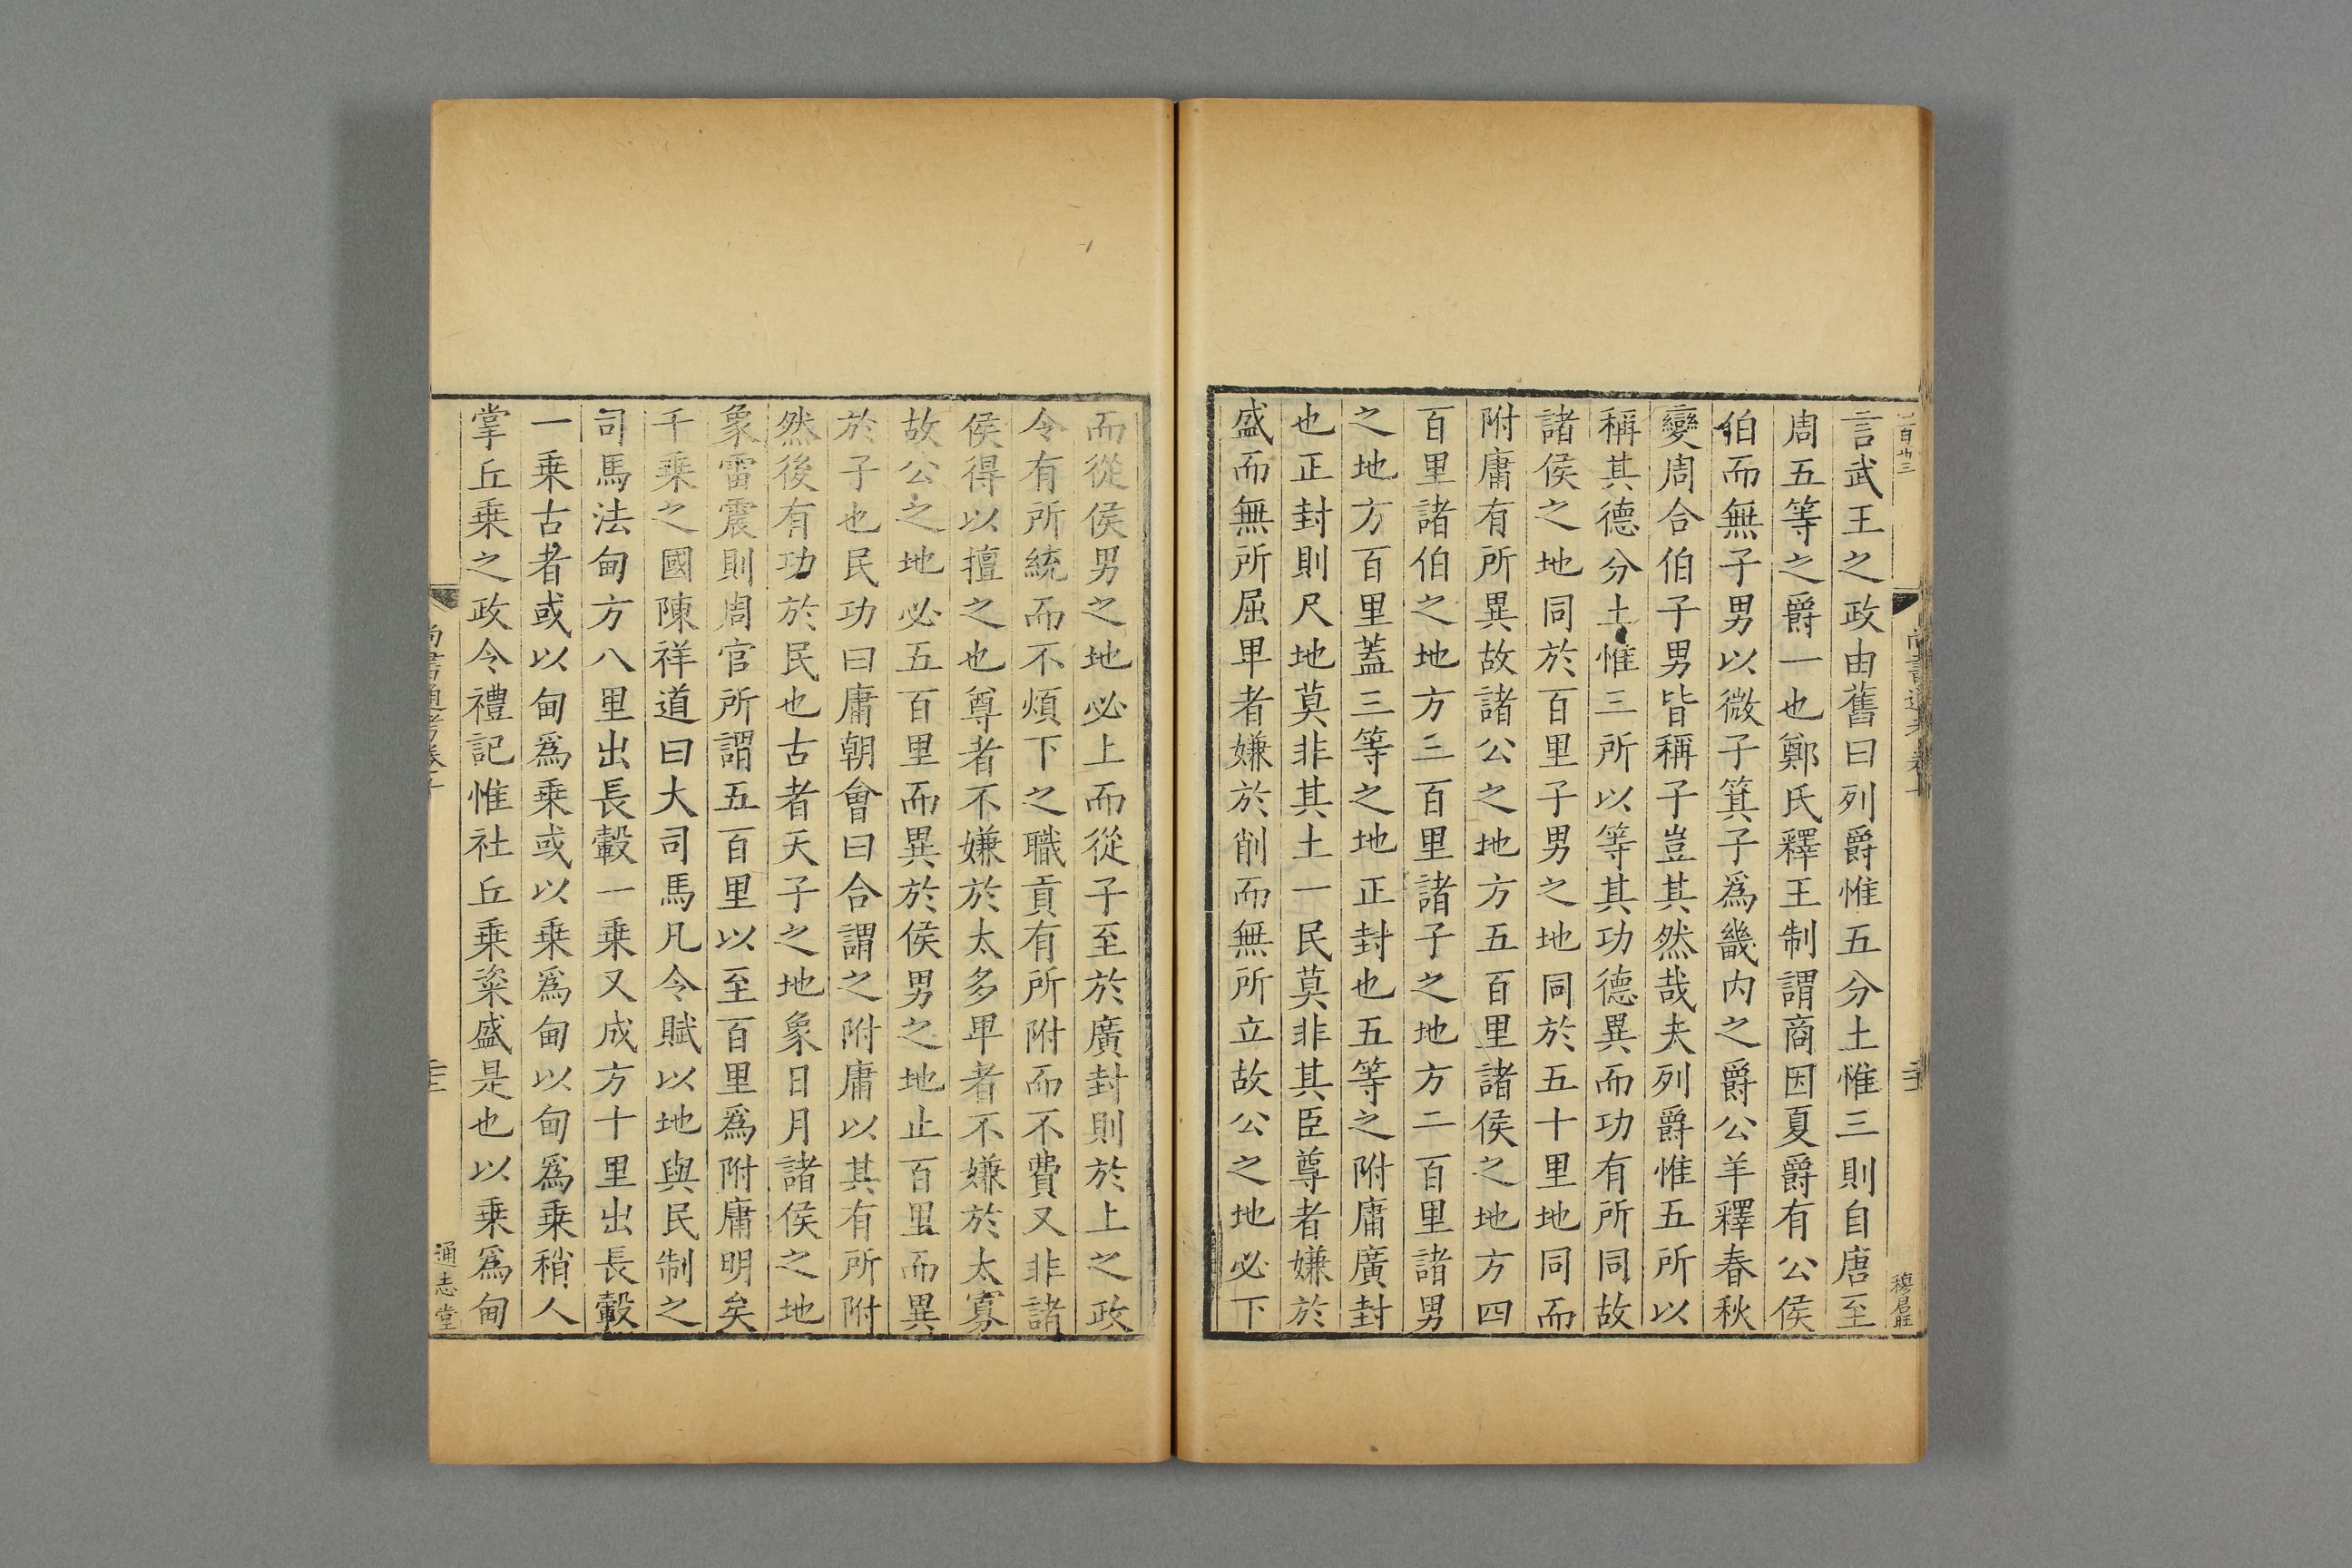 言武王之政由舊曰列爵惟五分土惟三則自唐至
周五等之爵一也鄭氏釋王制謂商因夏爵有公侯
伯而無子男以微子箕子爲畿内之爵公羊釋春秋
變周合伯子男皆稱子豈其然哉夫列爵惟五所以
稱其德分土惟三所以等其功德異而功有所同故
諸侯之地同於百里子男之地同於五十里地同而
附庸有所異故諸公之地方五百里諸侯之地方四
百里諸伯之地方三百里諸子之地方二百里諸男
之地方百里蓋三等之地正封也五等之附庸廣封
也正封則尺地莫非其土一民莫非其臣尊者嫌於
盛而無所屈卑者嫌於削而無所立故公之地必下
而從侯男之地必上而從子至於廣封則於上之政
令有所統而不煩下之職貢有所附而不費又非諸
侯得以擅之也尊者不嫌於太多卑者不嫌於太寡
故公之地必五百里而異於侯男之地止百里而異
於子也民功曰庸朝會曰合謂之附庸以其有所附
然後有功於民也古者天子之地象日月諸侯之地
象雷震則周官所謂五百里以至百里爲附庸明矣
千乗之國陳祥道曰大司馬凡令賦以地與民制之
司馬法甸方八里出長轂一乗又成方十里出長轂
一乗古者或以甸爲乗或以乗爲甸以甸爲乗稍人
掌丘乗之政令禮記惟社丘乗粢盛是也以乗爲甸
尚書通考卷
通志堂